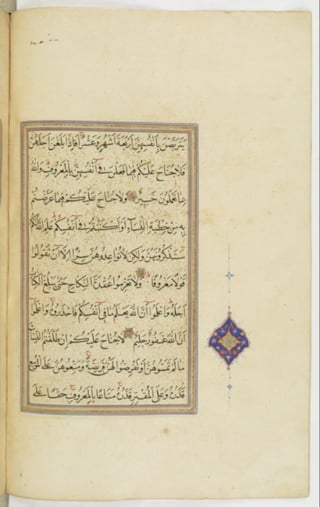 يتربصن بأنفسهن أربعة أشهر وعشرا فإذا بلغن أجلهن
فلا جناح عليكم فيما فعلن في أنفسهن بالمعروف والله
بما تعملون خبير ولا جناح عليكم فيما عرضتم
به من خطبة النساء أو أكننتم في أنفسكم علم الله أنكم
ستذكرونهن ولكن لا تواعدوهن سرا إلا أن تقولوا
قولا معروفا ولا تعزموا عقدة النكاح حتى يبلغ الكتاب
أجله واعلموا أن الله يعلم ما في أنفسكم فاحذروه واعلموا
أن الله غفور حليم لا جناح عليكم إن طلقتم النساء
ما لم تمسوهن أو تفرضوا لهن فريضة ومتعوهن على الموسع
قدره وعلى المقتر قدره متاعا بالمعروف حقا على